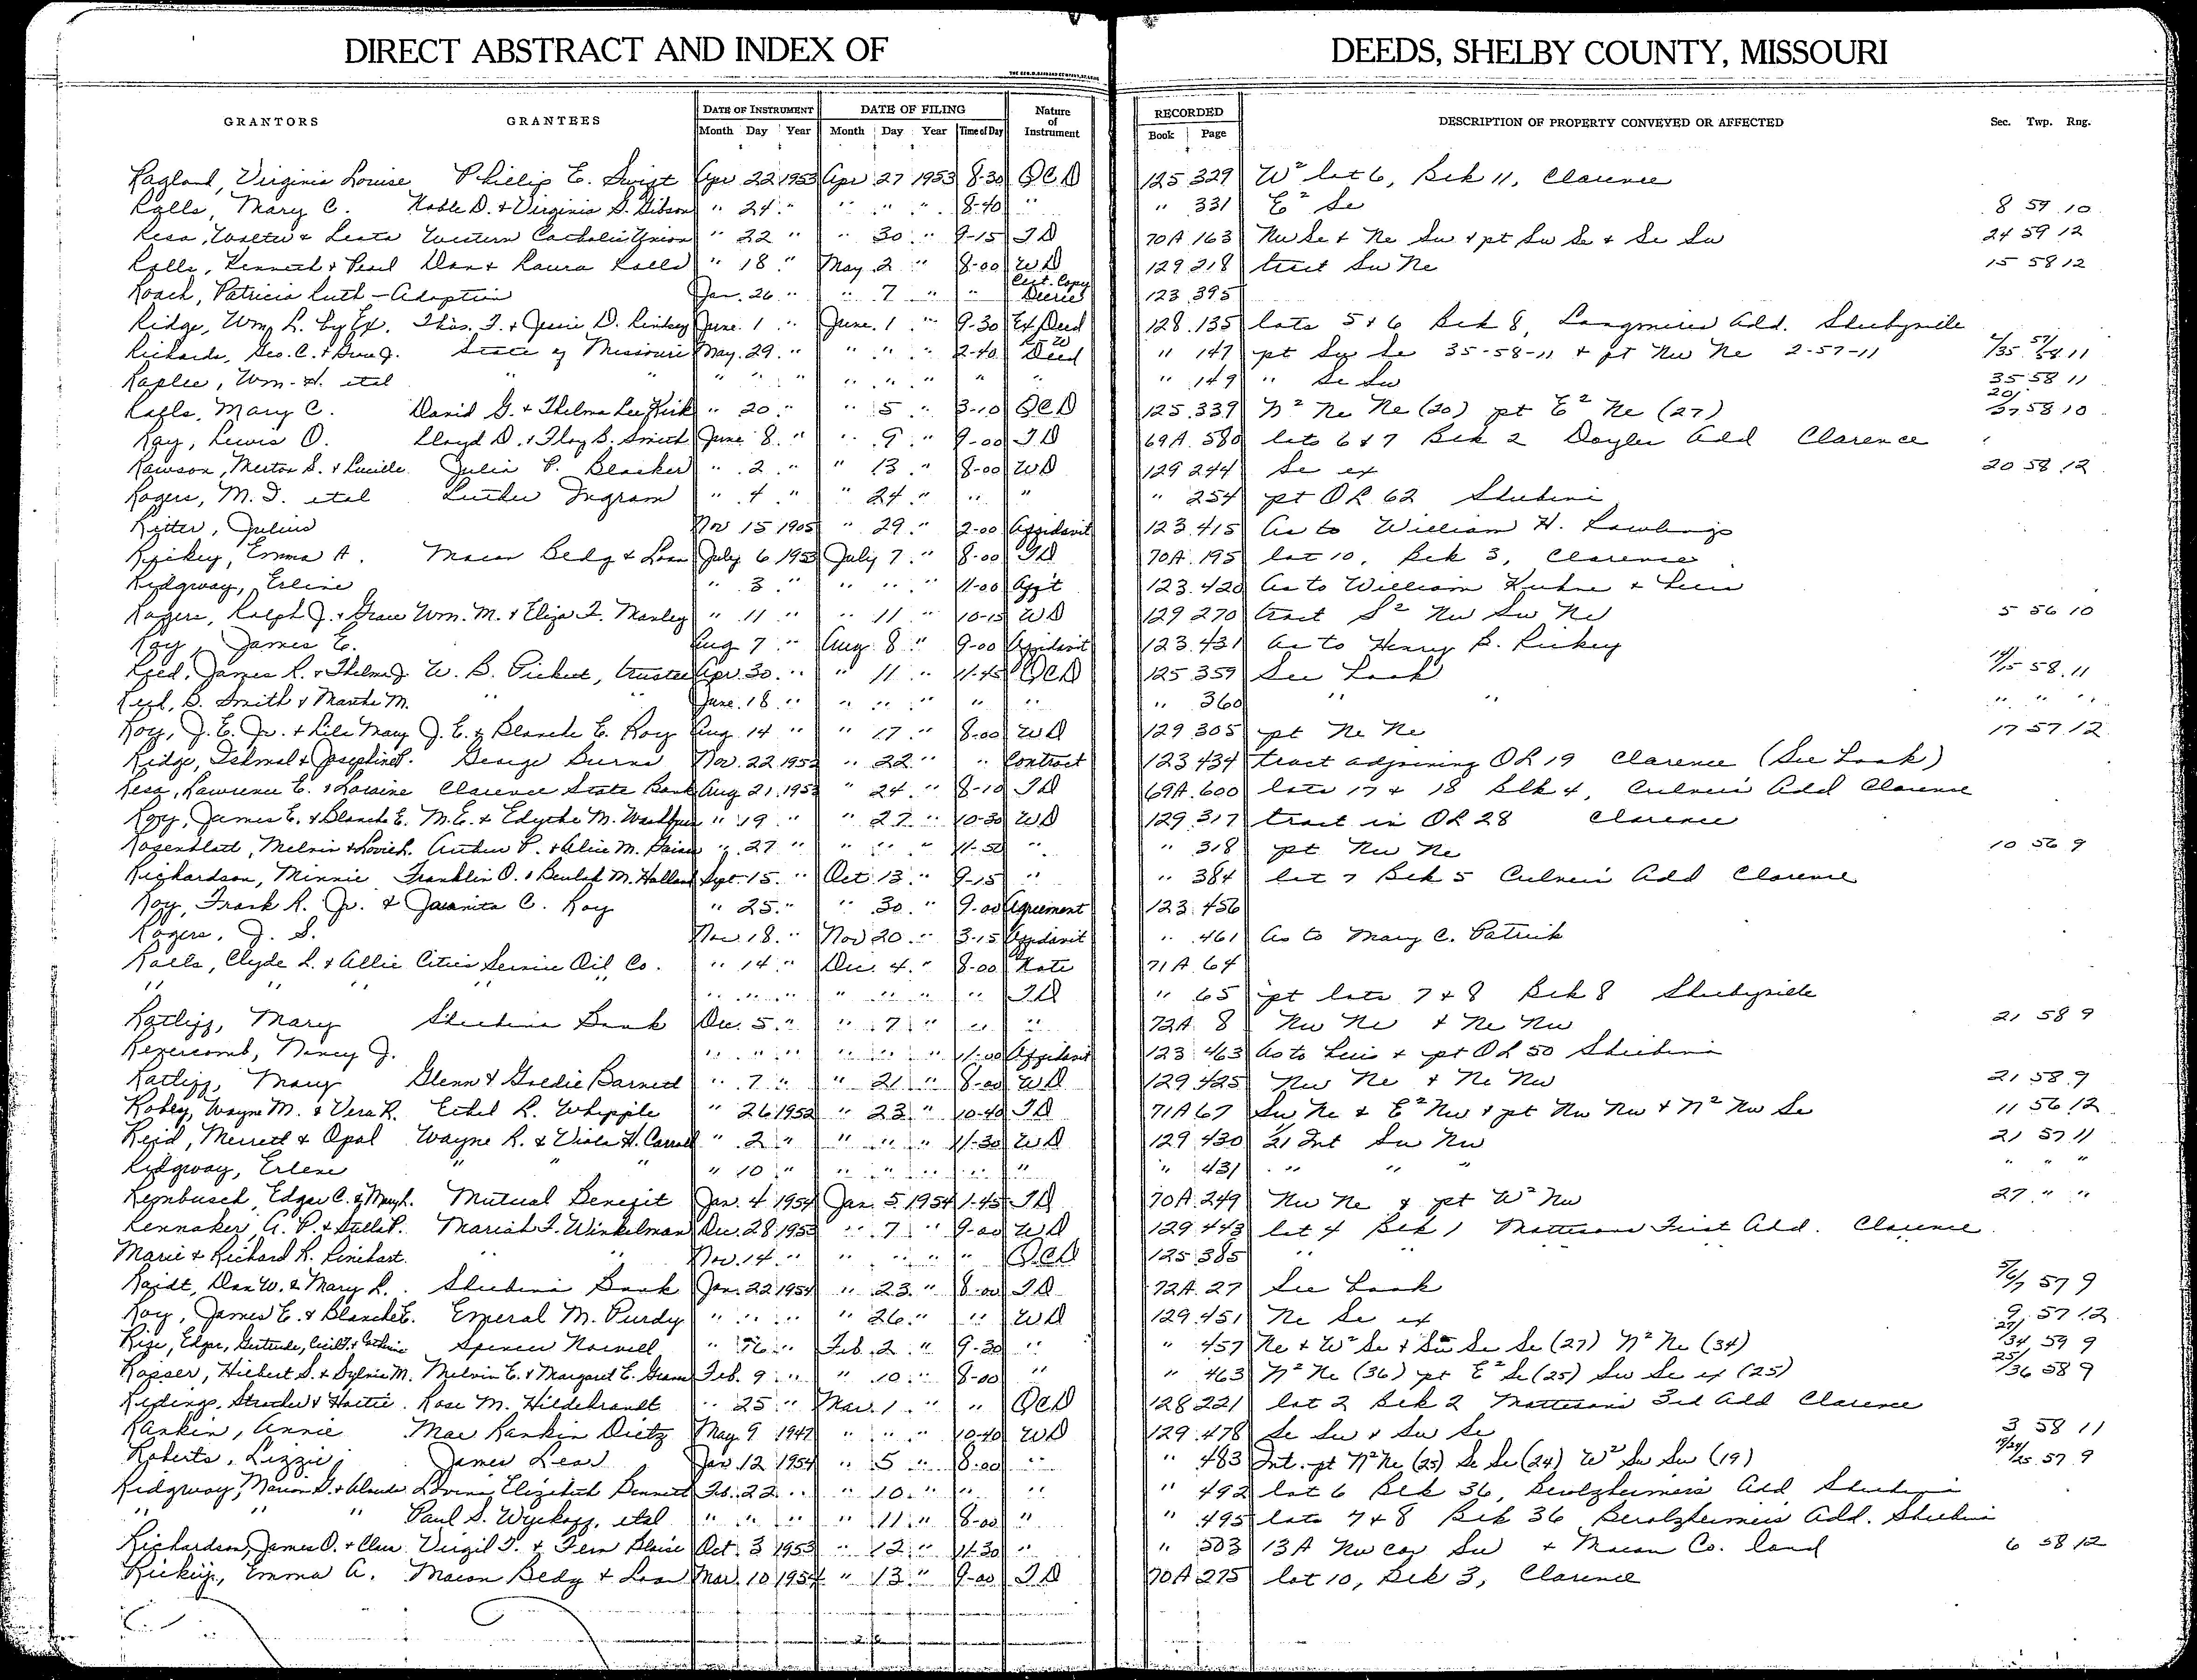 DIRECT ABSTRACT AND INDEX OF DEEDS, SHELBY COUNTY, MISSOURI
GRANTORS GRANTEES DATE OF INSTRUMENT DATE OF FILING Nature of Instrument RECORDED DESCRIPTION OF PROPERTY CONVEYED OR AFFECTED Sec. Twp. Rng.
Month Day Year Month Day Year Time of Day Book Page
Ragland, Virginia Louise Phillip E. Swigt Apr 22 1953 Apr 27 1953 8-30 QCD 125 329 W² lot 6, Blk 11, Clarence
Ralls, Mary C. Noble D. & Virginia S. Gibson " 24 " " " " 8-40 " " 331 E² Se 8 59 10
Resa, Walter & Leata Western Catholic Union " 22 " " 30 " 9-15 TD 70A 163 Nw Se & Ne Sw & pt Sw Se & Se Sw 24 59 12
Ralls, Kenneth & Pearl Dan & Laura Ralls " 18 " May 2 " 8-00 WD 129 218 tract Sw Ne 15 58 12
Roach, Patricia Ruth - Adoption Jan. 26 " " 7 " " Cert. Copy Decree 123 395
Ridge, Wm. L. by Ex. Thos. F. & Jessie D. Lindsey June 1 " June 1 " 9-30 Ex Deed 128 135 lots 5 & 6 Blk 8, Langmires Add. Shelbyville
Richards, Geo. C. & Grace J. State of Missouri May 29 " " " " 2-40 R of W Deed " 147 pt Sw Se 35-58-11 & pt Nw Ne 2-57-11 2/35 57/58 11
Raplee, Wm. H. etal " " " " " " " " " " " 149 " Se Sw 35 58 11
Ralls, Mary C. David G. & Thelma Lee Kirk " 20 " " 5 " 3-10 QCD 125 339 N² Ne Ne (20) pt E² Ne (27) 20/27 58 10
Ray, Lewis O. Lloyd D. & Floy B. Smith June 8 " " 9 " 9-00 TD 69A 580 lots 6 & 7 Blk 2 Doyles Add Clarence
Rawson, Merton S. & Lucille Julia P. Blacker " 2 " " 13 " 8-00 WD 129 244 Se ex 20 58 12
Rogers, M. D. etal Luther Ingram " 4 " " 24 " " " " 254 pt OL 62 Shelbina
Ritter, Julius Nov 15 1905 " 29 " 2-00 Affidavit 123 415 As to William H. Rawlings
Rickey, Emma A. Macon Bldg & Loan July 6 1953 July 7 " 8-00 TD 70A 195 lot 10, Blk 3, Clarence
Ridgway, Erlene " 3 " " " " 11-00 Aff't 123 420 As to William Kuhne & Lien
Rogers, Ralph J. & Grace Wm. M. & Eliza F. Manley " 11 " " 11 " 10-15 WD 129 270 tract S² Nw Sw Ne 5 56 10
Roy, James E. Aug 7 " Aug 8 " 9-00 Affidavit 123 431 as to Henry B. Rickey
Reed, James R. & Thelma J. W. B. Pickett, trustee Apr. 30 " " 11 " 11-45 QCD 125 359 See book 14/15 58 11
Reed, B. Smith & Martha M. " " June 18 " " " " " " " 360 " " " " "
Roy, J. E. Jr. & Lila Mary J. E. & Blanche E. Roy Aug 14 " " 17 " 8-00 WD 129 305 pt Ne Ne 17 57 12
Ridge, Ishmal & Josephine P. George Burns Nov. 22 1952 " 22 " " Contract 123 434 tract adjoining OL 19 Clarence (See book)
Resa, Lawrence E. & Loraine Clarence State Bank Aug 21 1953 " 24 " 8-10 TD 69A 600 lots 17 & 18 Blk 4, Culvers Add Clarence
Roy, James E. & Blanche E. M. E. & Edythe M. " 19 " " 27 " 10-30 WD 129 317 tract in OL 28 Clarence
Rosenblatt, Melvin & Arthur P. & Alice M. " 27 " " " " 11-50 " " 318 pt Nw Ne 10 56 9
Richardson, Minnie Franklin O. & Beulah M. Holland Sept. 15 " Oct 13 " 9-15 " " 384 lot 7 Blk 5 Culvers Add Clarence
Roy, Frank R. Jr. & Juanita C. Roy " 25 " " 30 " 9-00 Agreement 123 456
Rogers, J. S. Nov 18 " Nov 20 " 3-15 Affidavit " 461 As to Mary C. Patrick
Ralls, Clyde L. & Allie Cities Service Oil Co. " 14 " Dec. 4 " 8-00 Note 71A 64
" " " " " " " " " " " " TD " 65 pt lots 7 & 8 Blk 8 Shelbyville
Ratliff, Mary Shelbina Bank Dec. 5 " " 7 " " " 72A 8 Nw Ne & Ne Nw 21 58 9
Revercomb, Nancy J. " " " " " " 11-00 Affidavit 123 463 As to Lien & pt OL 50 Shelbina
Ratliff, Mary Glenn & Goldie Barnett " 7 " " 21 " 8-00 WD 129 425 Nw Ne & Ne Nw 21 58 9
Robey, Wayne M. & Vera R. Ethel R. Whipple " 26 1952 " 23 " 10-40 TD 71A 67 Sw Ne & E² Nw & pt Nw Nw & N² Nw Se 11 56 12
Reid, Merrett & Opal Wayne R. & Viola H. Carroll " 2 " " " " 11-30 WD 129 430 Int Sw Nw 21 57 11
Ridgway, Erlene " " " " 10 " " " " " " " 431 " " " " " "
Rembusch, Edgar C. & Mary L. Mutual Benefit Jan. 4 1954 Jan. 5 1954 1-45 TD 70A 249 Nw Ne & pt W² Nw 27 " "
Rennaker, A. P. & Stella P. Mariah F. Winkelman Dec. 28 1953 " 7 " 9-00 WD 129 443 lot 4 Blk 1 Mattesons First Add. Clarence
Marie & Richard R. Rinehart " " Nov. 14 " " " " " QCD 125 385 " "
Raidt, Dan W. & Mary L. Shelbina Bank Jan. 22 1954 " 23 " 8-00 TD 72A 27 See book 5/6/7 57 9
Roy, James E. & Blanche E. Emeral M. Purdy " " " " 26 " " WD 129 451 Ne Se ex 9 57 12
Rise, Edgar, Gertrude, Cecil T. & Spencer Norvell " " Feb. 2 " 9-30 " " 457 Ne & W² Se & Se Se (27) N² Ne (34) 27/34 59 9
Rosser, Hilbert S. & Sylvia M. Melvin E. & Margaret E. Feb. 9 " " 10 " 8-00 " " 463 N² Ne (36) pt E² Se (25) Sw Se ex (25) 25/36 58 9
Ridings, Strother & Hattie Rose M. Hildebrandt " 25 " Mar. 1 " " QCD 128 221 lot 2 Blk 2 Mattesons 3rd Add Clarence
Rankin, Annie Mae Rankin Dietz May 9 1947 " " " 10-40 WD 129 478 Se Sw & Sw Se 3 58 11
Roberts, Lizzie James Lear Jan 12 1954 " 5 " 8-00 " " 483 Int. pt N² Ne (25) Se Se (24) W² Sw Sw (19) 19/24/25 57 9
Ridgway, Marion G. & Claude Lovina Elizabeth Bennett Feb. 22 " " 10 " " " " 492 lot 6 Blk 36, Berolzheimers Add Shelbina
" " " Paul S. Wyckoff, etal " " " " 11 " 8-00 " " 495 lots 7 & 8 Blk 36 Berolzheimers Add. Shelbina
Richardson, James O. & Cleo Virgil T. & Fern Blaise Oct. 3 1953 " 12 " 11-30 " " 503 13A Nw cor Sw & Macon Co. land 6 58 12
Rickey, Emma A. Macon Bldg & Loan Mar. 10 1954 " 13 " 9-00 TD 70A 275 lot 10, Blk 3, Clarence